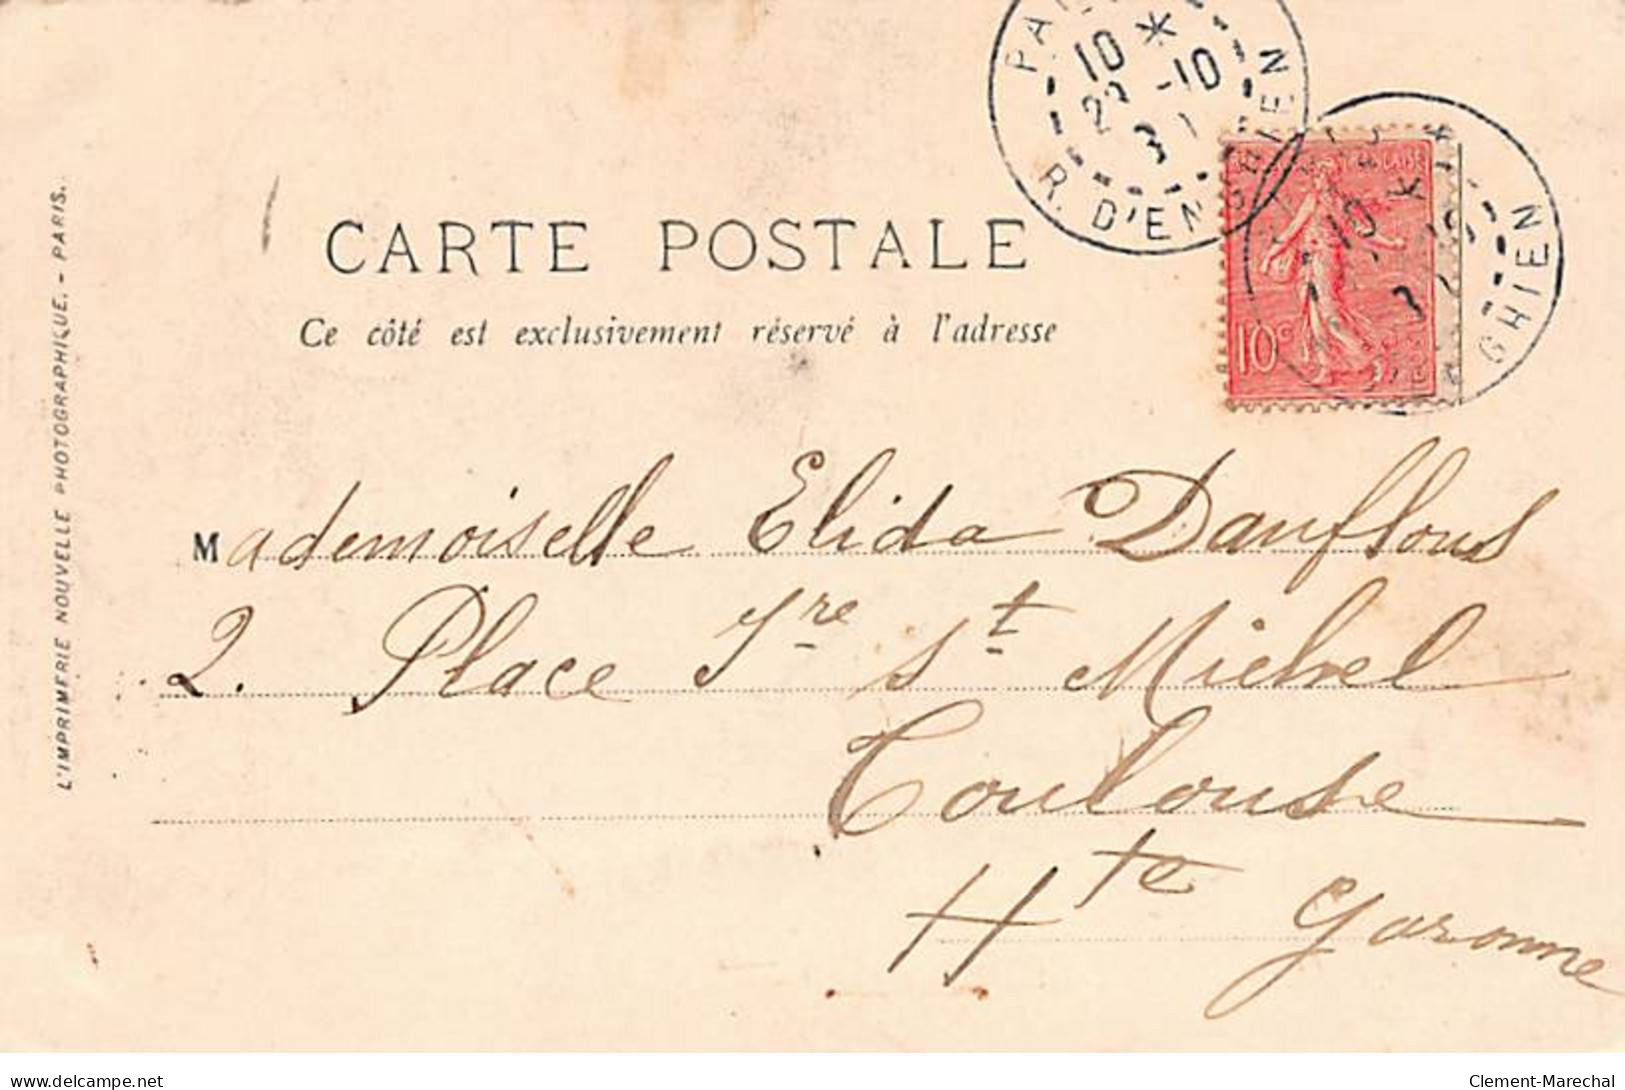 PA
10 *
22 -10
3
R. D'ENGHIEN
10
GHIEN
10c
CARTE POSTALE
Ce côté est exclusivement réservé à l'adresse
L'IMPRIMERIE NOUVELLE PHOTOGRAPHIQUE. - PARIS.
Mademoiselle Elida Dauflous
2. Place Jre St Michel
Toulouse
Hte Garonne
delcampe.net
Clement-Marechal